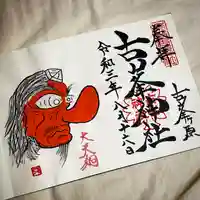 奉拝
古峯神社
古峯ヶ原
令和三年八月十六日
大天狗